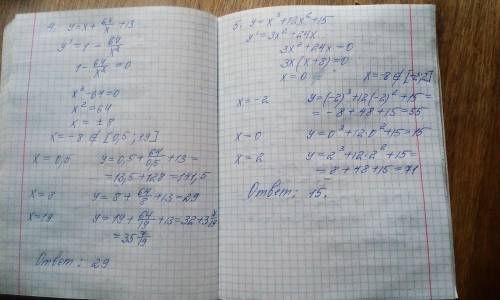 4. y = x + 64/x + 13
y' = 1 - 64/x²
1 - 64/x² = 0
x² - 64 = 0
x² = 64
x = ± 8
x = -8 ∉ [0,5 ; 19]
x = 0,5 y = 0,5 + 64/0,5 + 13 =
= 13,5 + 128 = 141,5
x = 8 y = 8 + 64/8 + 13 = 29
x = 19 y = 19 + 64/19 + 13 = 32 + 3 7/19
= 35 7/19
Ответ: 29
5. y = x³ + 12x² + 15
y' = 3x² + 24x
3x² + 24x = 0
3x(x + 8) = 0
x = 0 x = -8 ∉ [-2;2]
x = -2 y = (-2)³ + 12·(-2)² + 15 =
= -8 + 48 + 15 = 55
x = 0 y = 0³ + 12·0² + 15 = 15
x = 2 y = 2³ + 12·2² + 15 =
= 8 + 48 + 15 = 71
Ответ: 15.